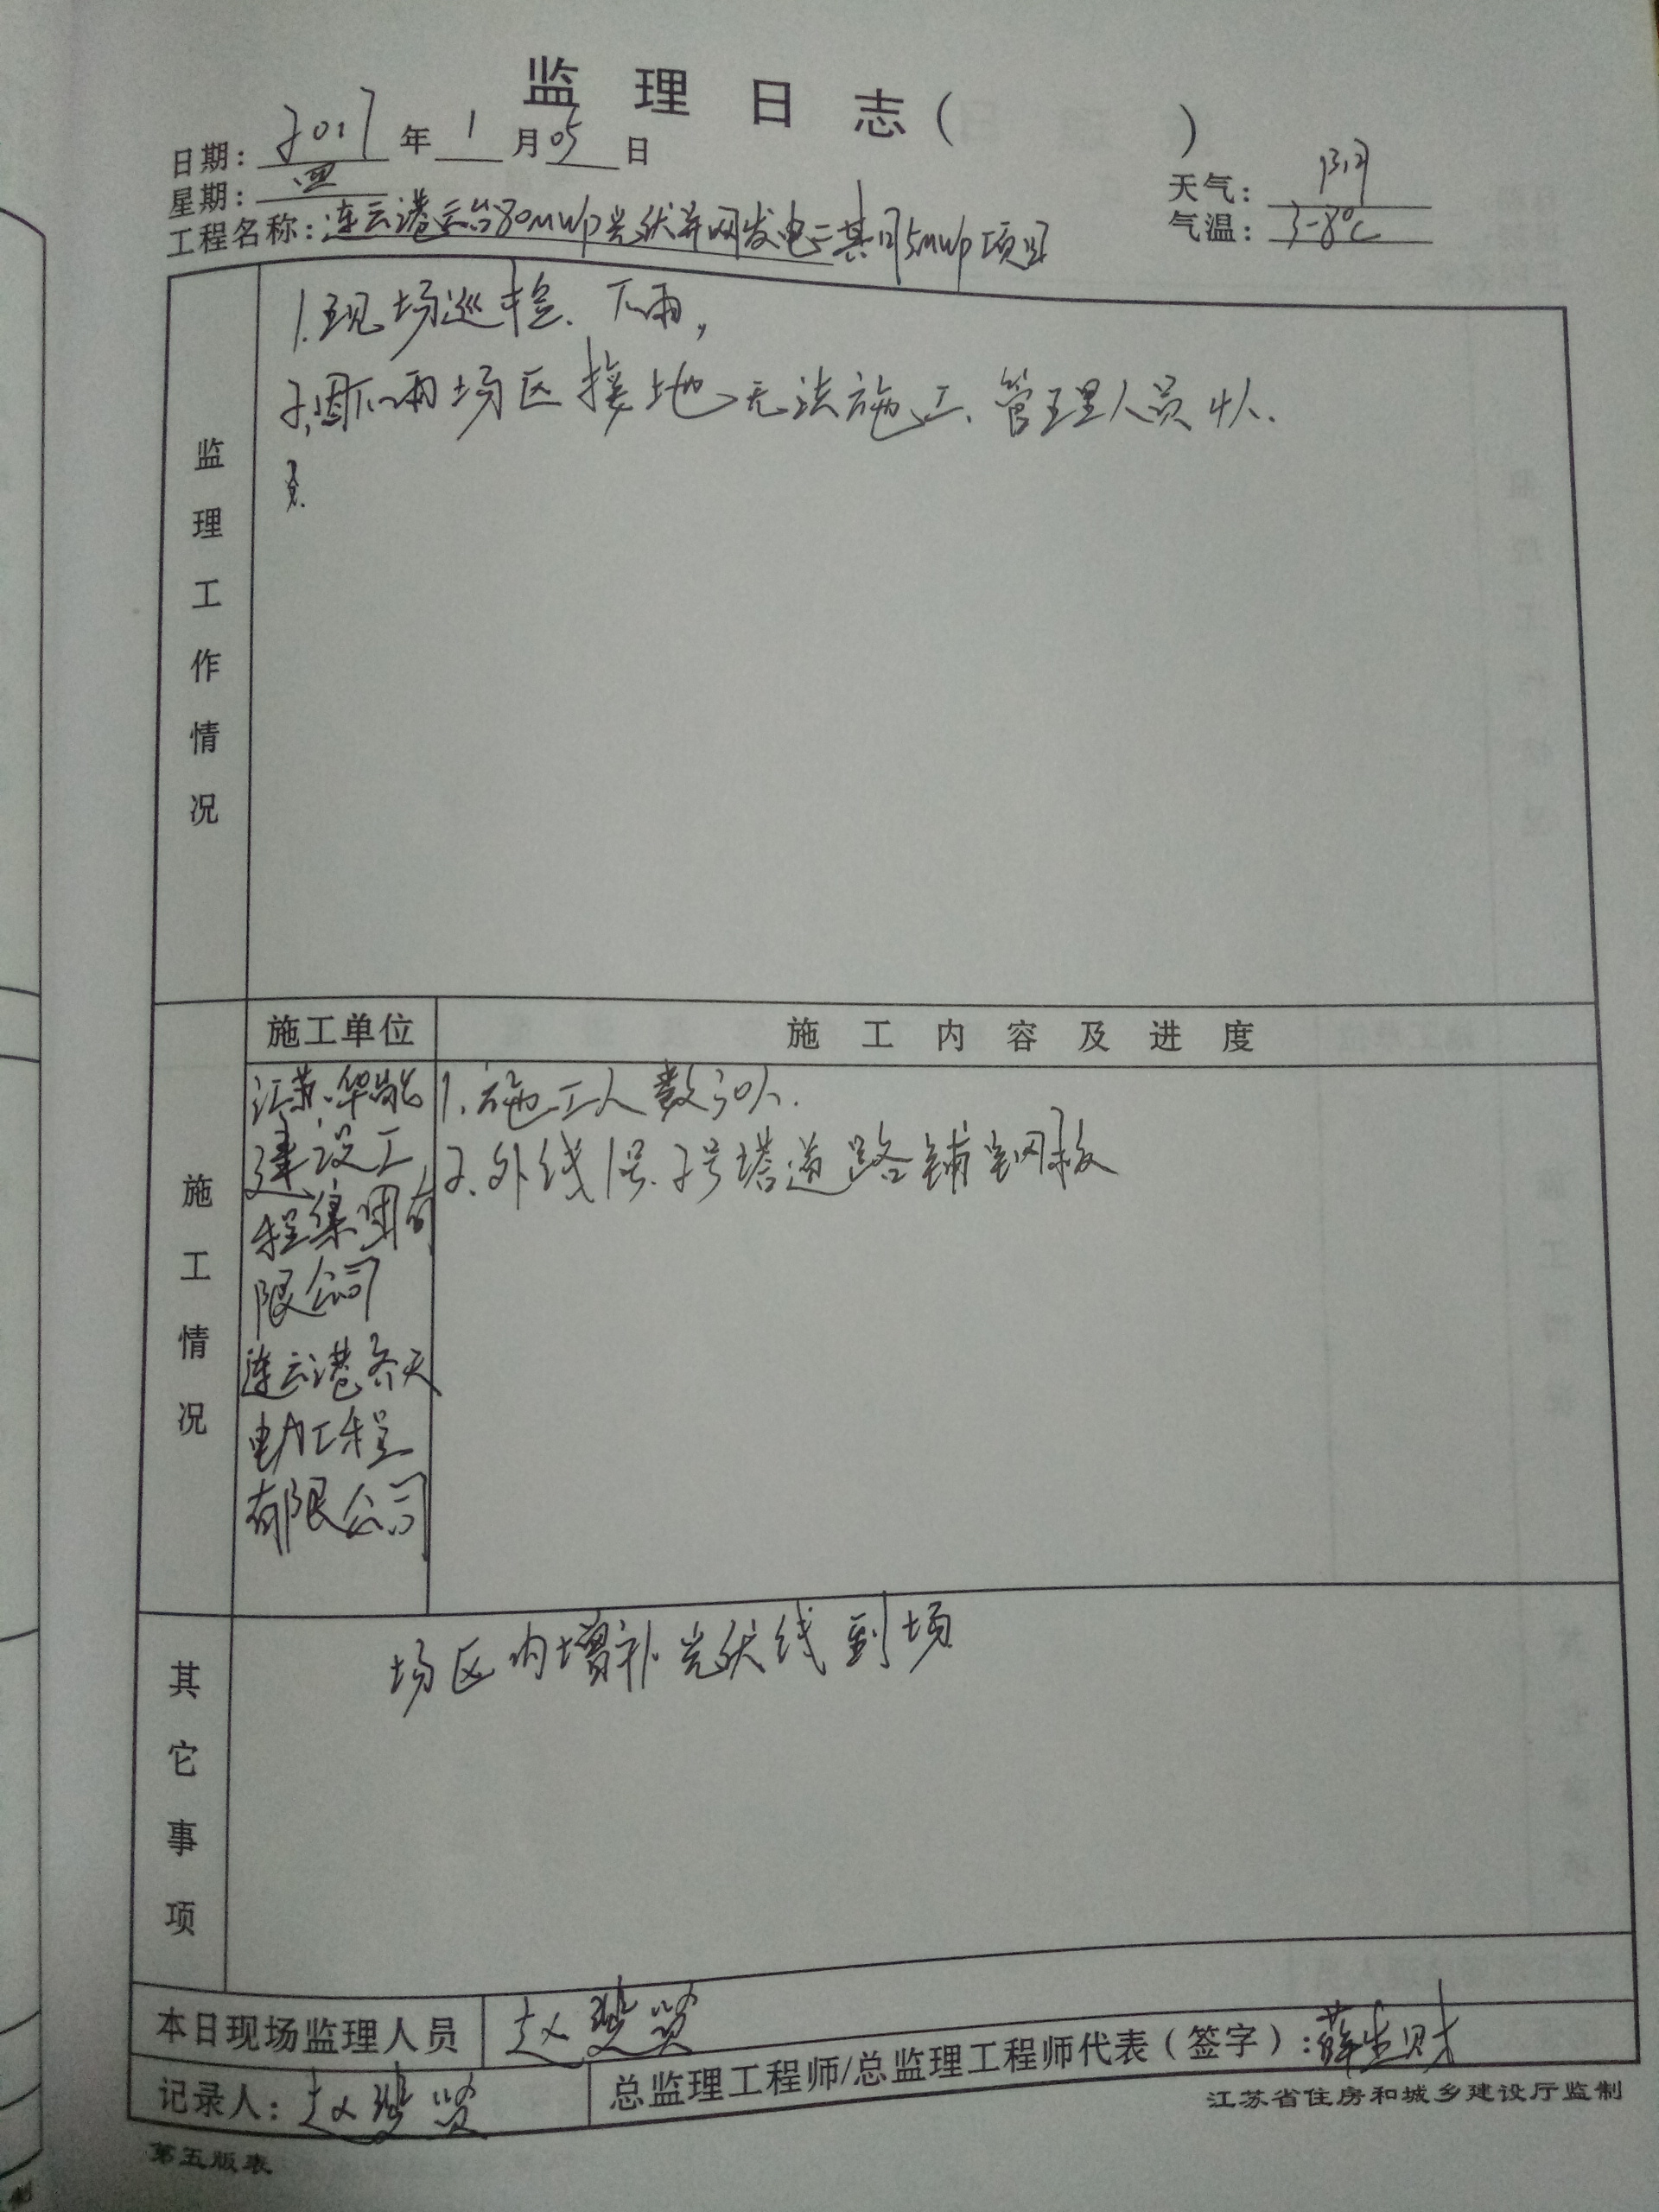 监理日志( )
日期: 2017 年 1 月 05 日
星期: 四
天气: 阴
工程名称: 连云港云台80MWp光伏并网发电二期15MWp项目
气温: 3-8℃
监理工作情况
1.现场巡检、下雨,
2.因下雨场区接地无法施工、管理人员4人.
施工情况
施工单位
施工内容及进度
江苏华能
建设工
程集团有
限公司
连云港齐天
电力工程
有限公司
1.施工人数30人.
2.外线1号.2号塔道路铺钢板
其它事项
场区内增补光伏线到场
本日现场监理人员 赵
记录人: 赵
总监理工程师/总监理工程师代表(签字): 薛生财
江苏省住房和城乡建设厅监制
第五版表